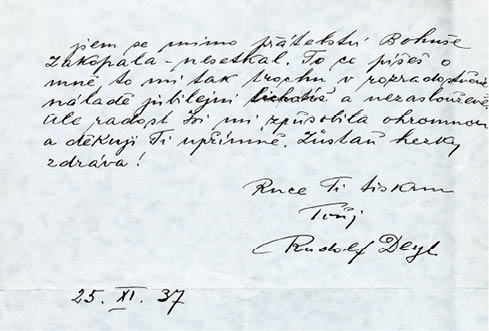 jsem se mimo přátelství Bohuše
Zakopala - nesetkal. To co píšeš o
mně to mi tak trochu v rozradostněné
náladě jubilejní lichotíš a nezaslouženě.
Ale radost Jsi mi způsobila ohromnou
a děkuji Ti upřímně. Zůstaň hezky
zdráva!
Ruce Ti tisknu
Tvůj
Rudolf Deyl
25. XI. 37